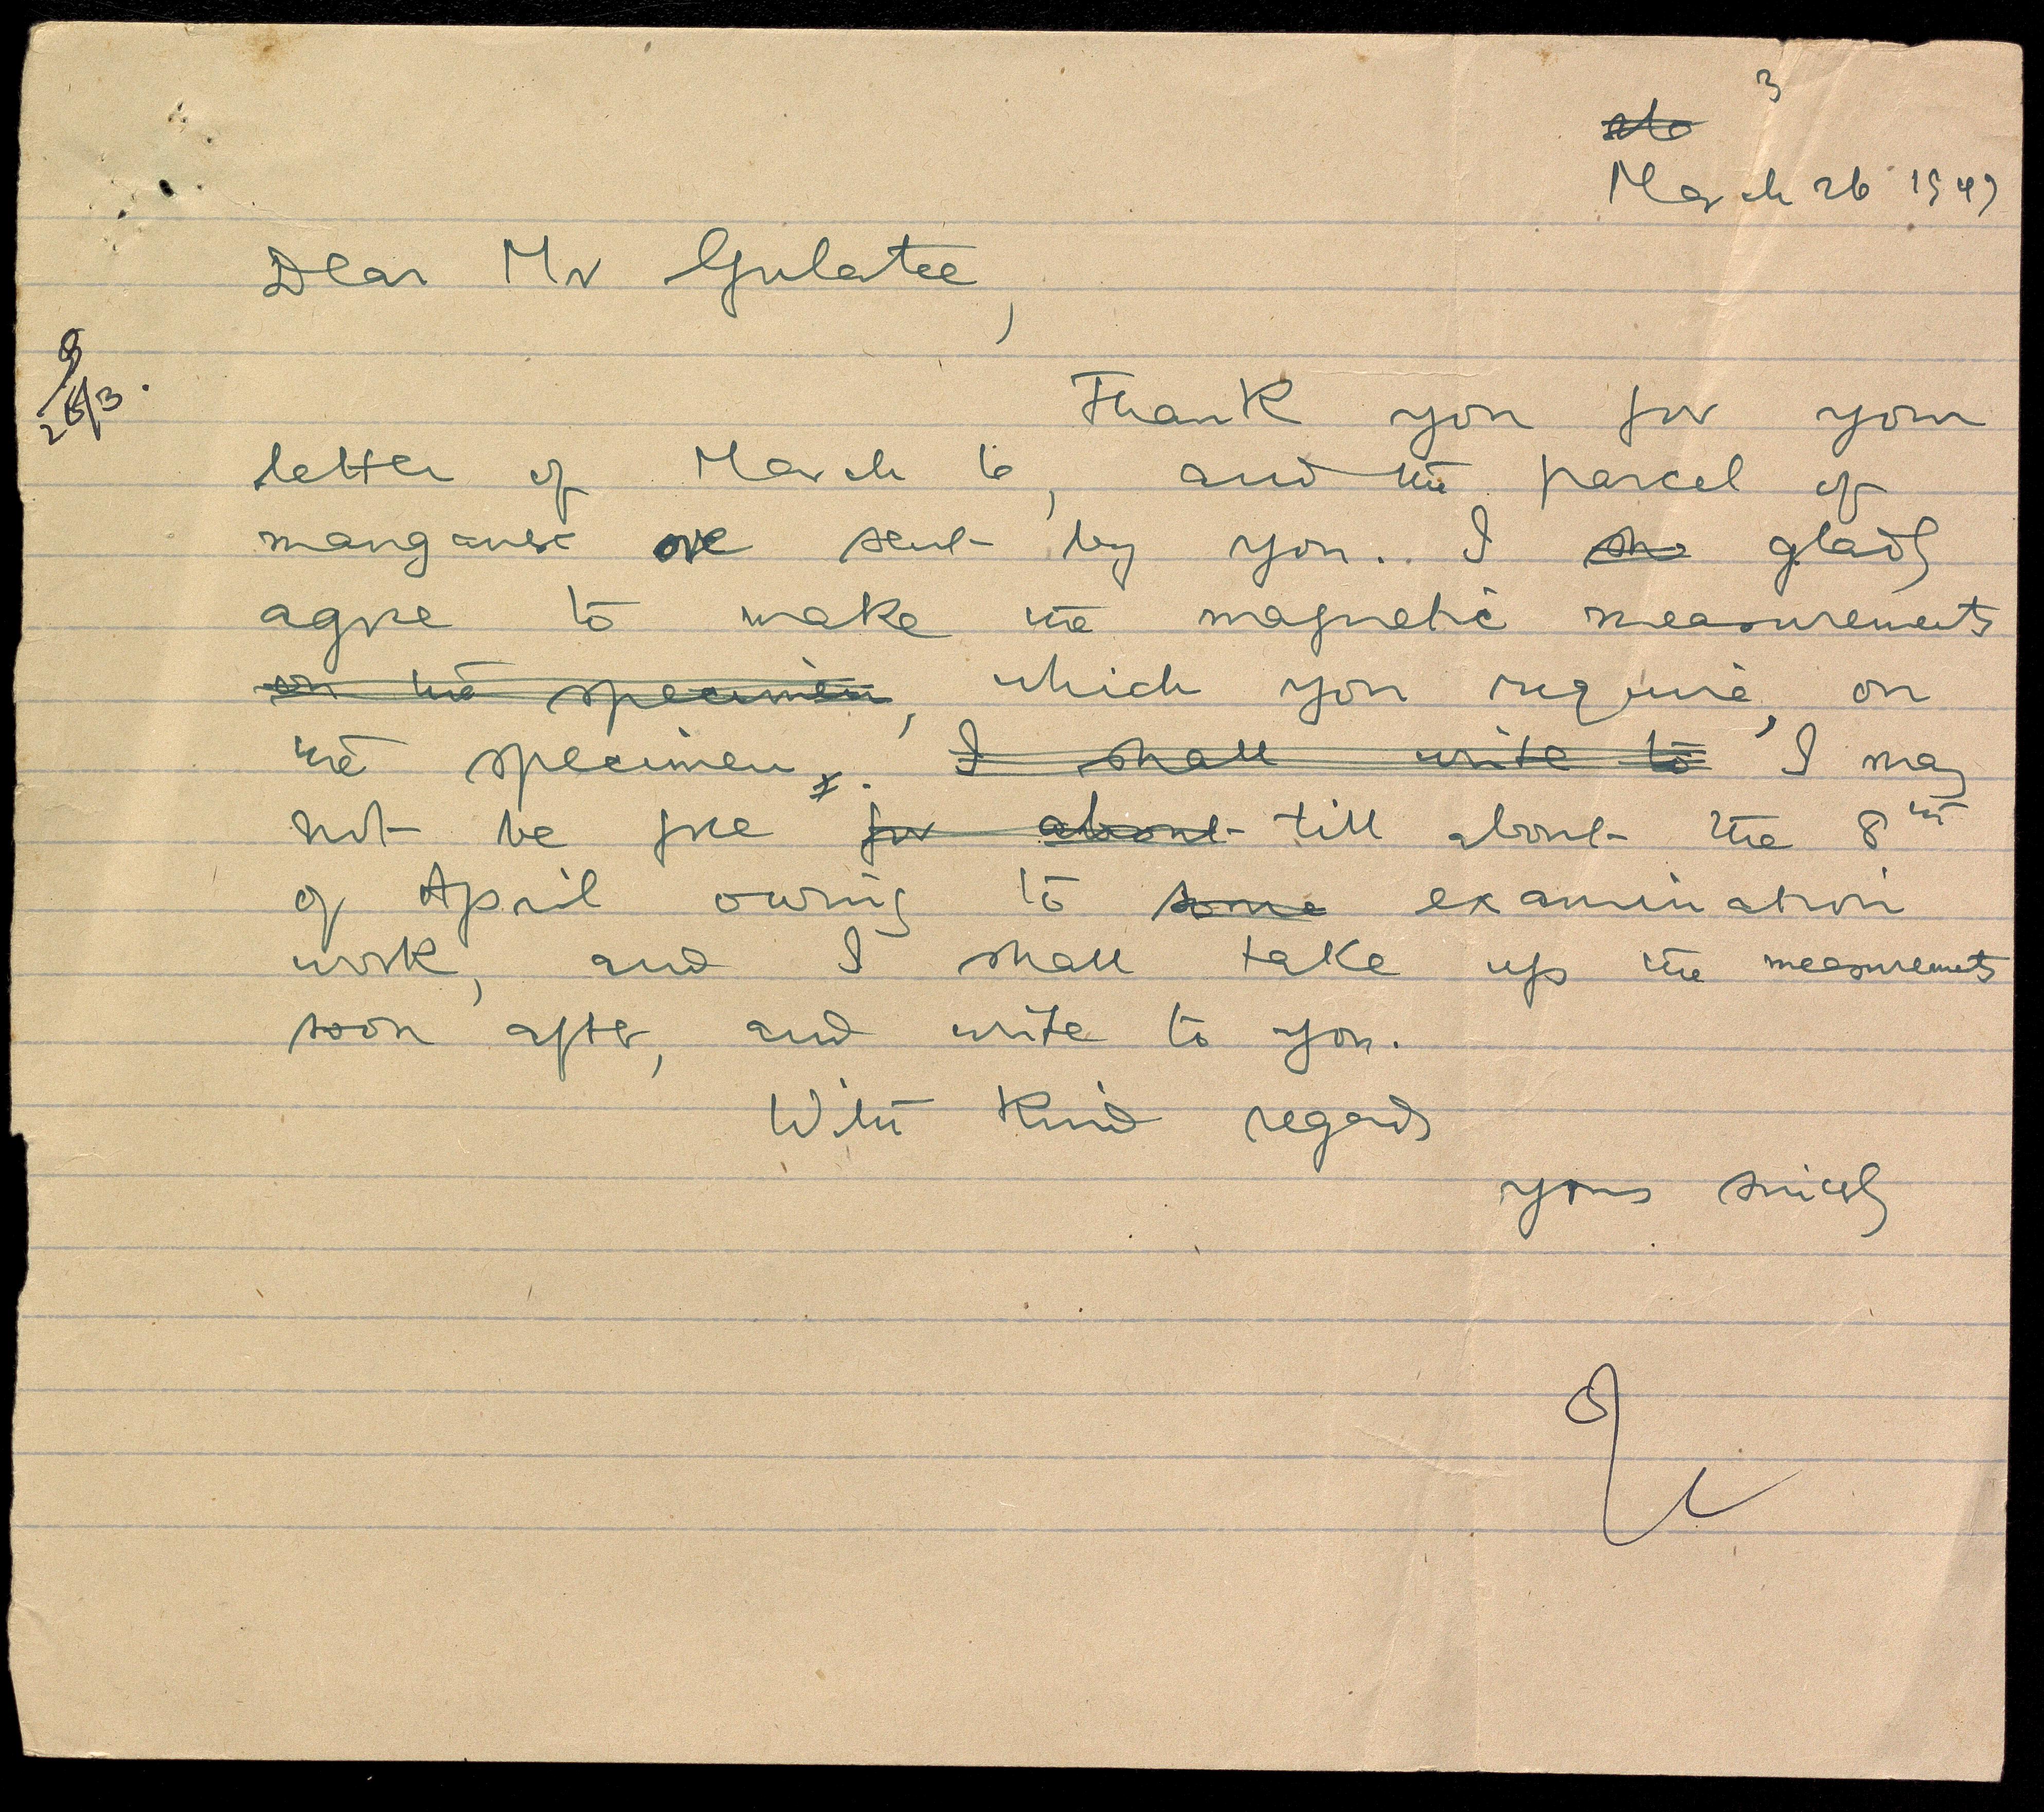 3
March 26 1949
Dear Mr Gulatee,
26/3.
Thank you for your
letter of March 6, and the parcel of
manganese ore sent by you. I gladly
agree to make the magnetic measurements
on the specimen, which you require, on
the specimen. I shall write to I may
not be free for about till about the 8th
of April owing to some examination
work, and I shall take up the measurements
soon after, and write to you.
With kind regards
yours sincely